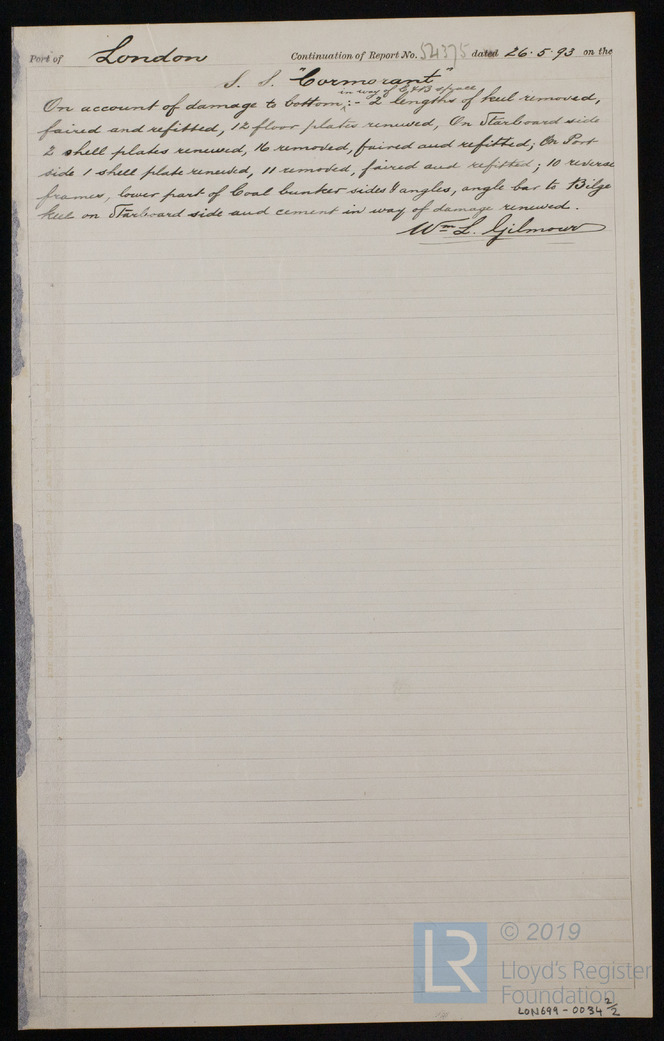 Port of London Continuation of Report No. 54375 dated 26.5.93 on the
S. S. "Cormorant"
in way of E & B space
On account of damage to bottom, :- 2 lengths of keel removed,
faired and refitted, 12 floor plates renewed, On Starboard side
2 shell plates renewed, 16 removed, faired and refitted; On Port
side 1 shell plate renewed, 11 removed, faired and refitted; 10 reverse
frames, lower part of Coal bunker sides & angles, angle bar to Bilge
keel on Starboard side and cement in way of damage renewed.
Wm L. Gilmour
LR © 2019
Lloyd's Register
Foundation
LON699-0034 2/2